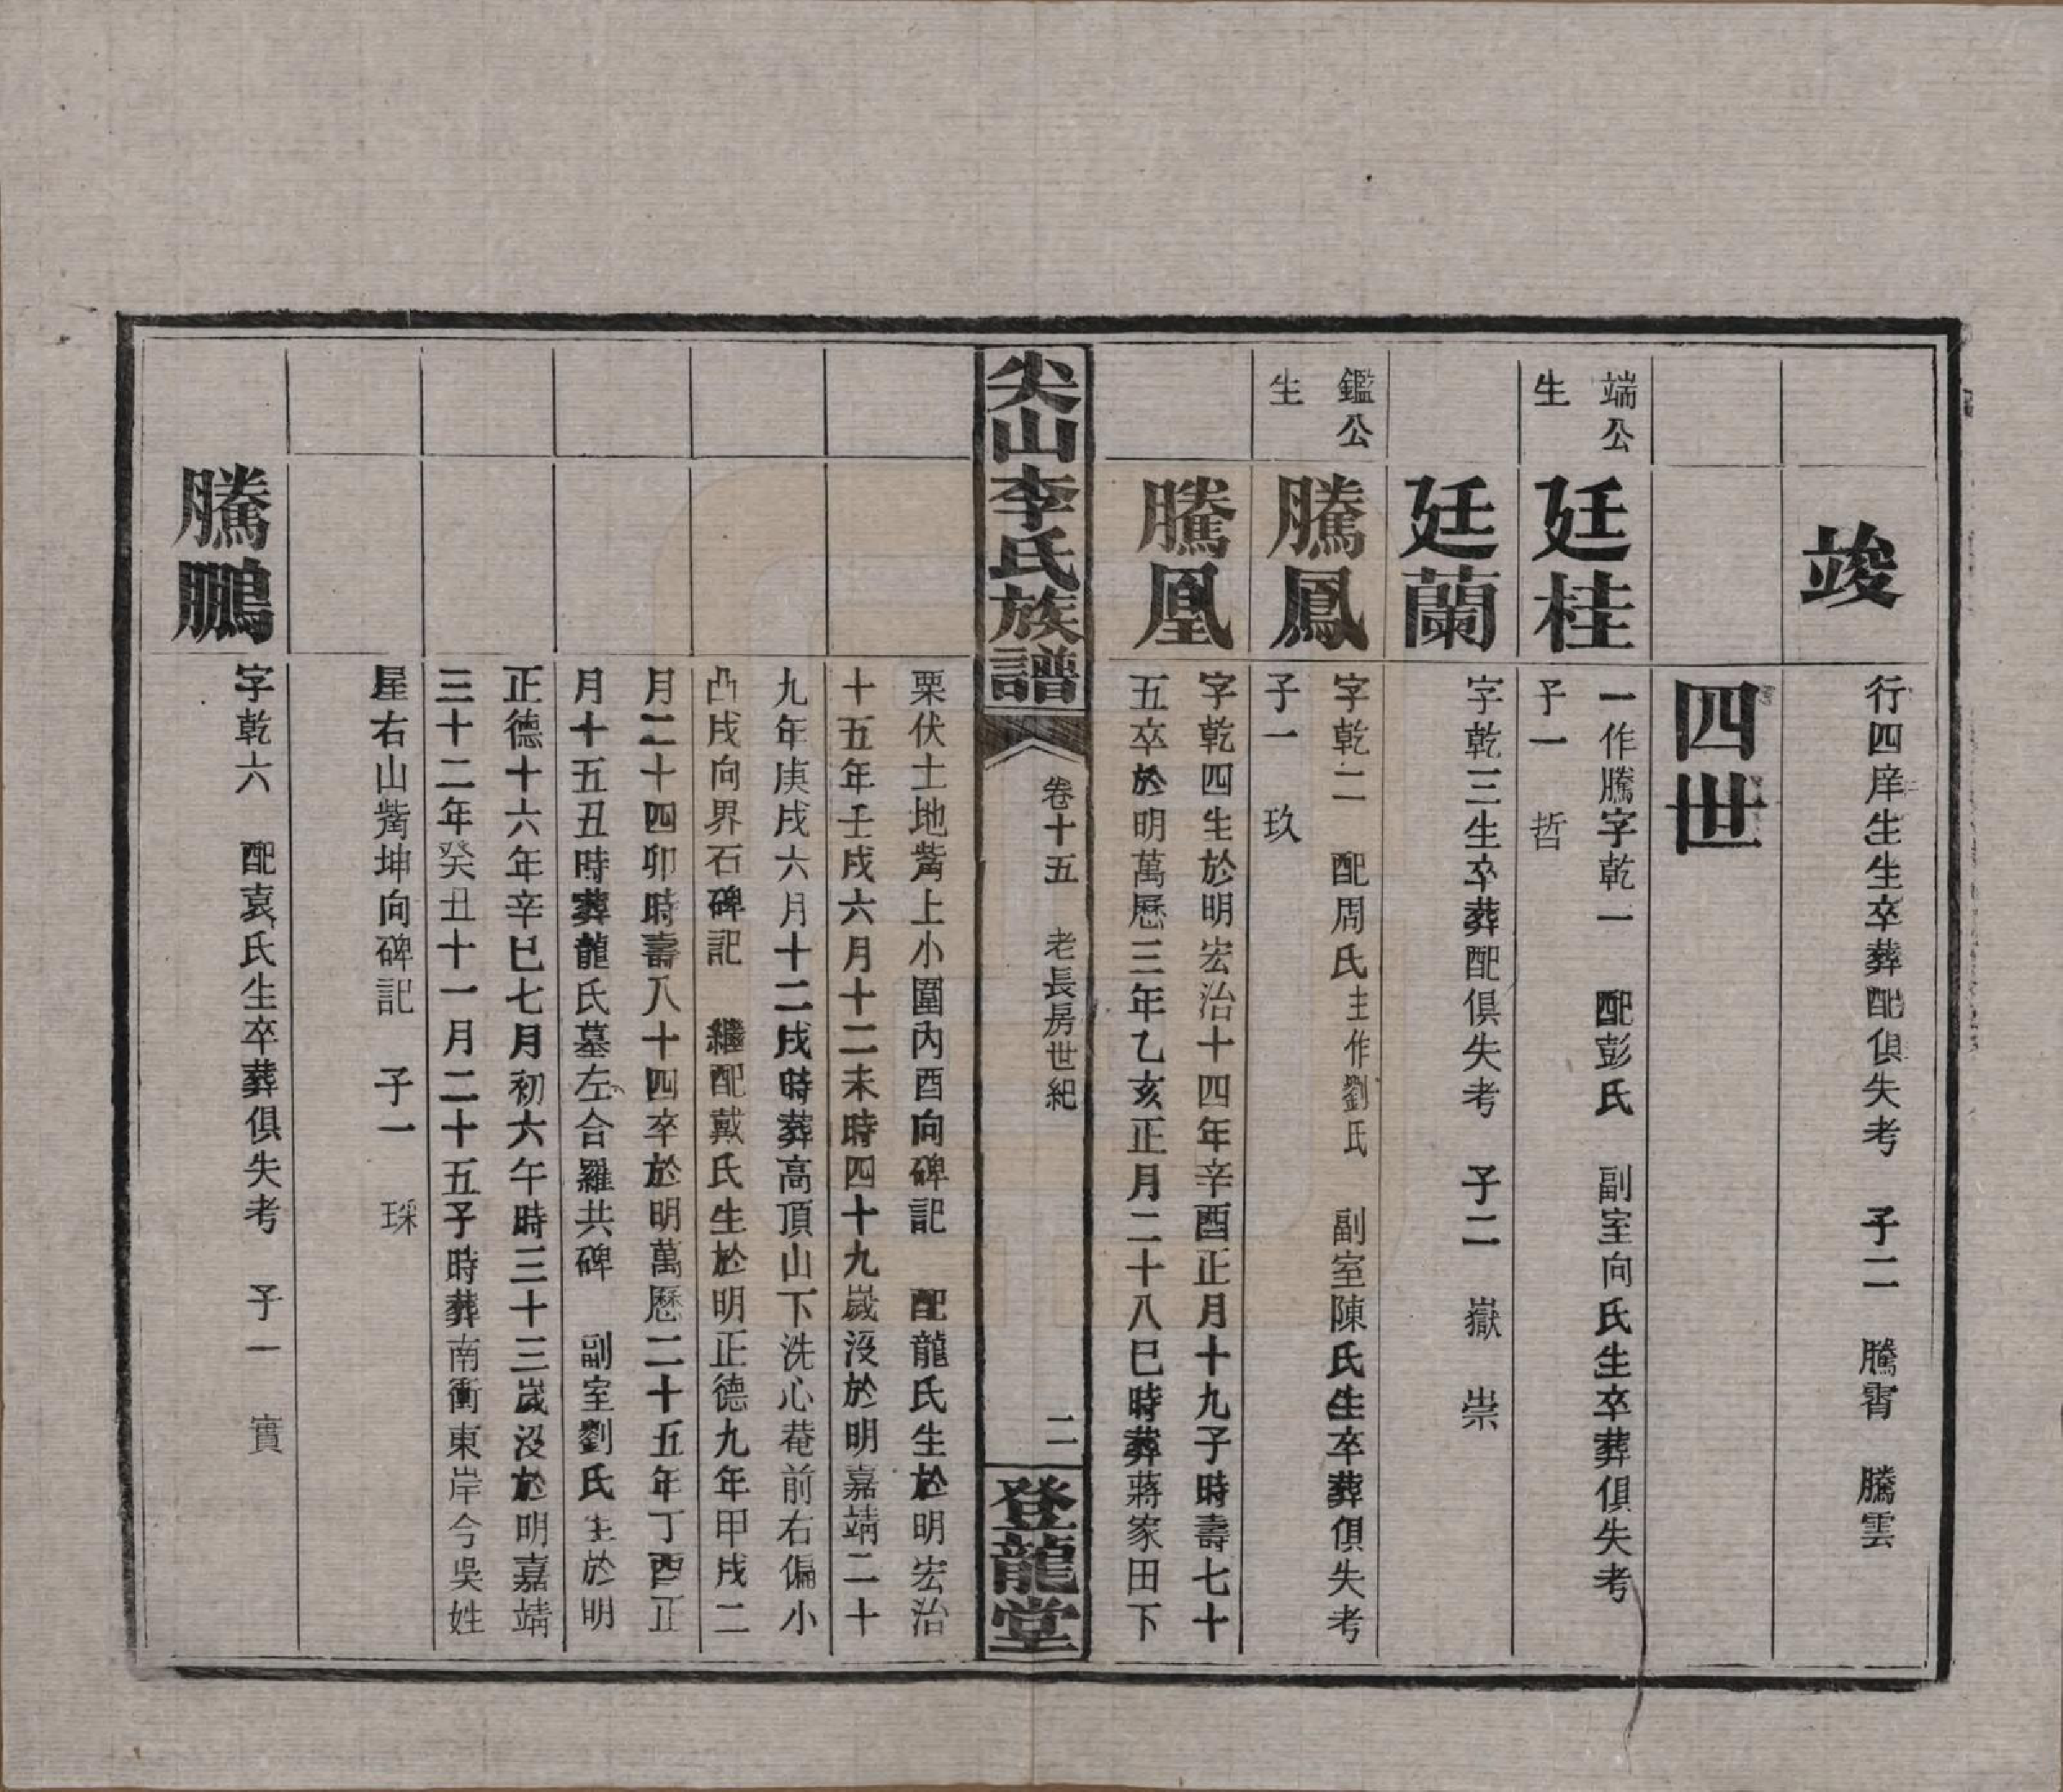 竣
行四庠生生卒葬配俱失考 子二 騰霄 騰雲
四世
端公
生
廷桂
一作騰字乾一 配彭氏 副室向氏生卒葬俱失考
子一 哲
廷蘭
字乾三生卒葬配俱失考 子二 嶽 崇
鑑公
生
騰鳳
字乾二 配周氏主作劉氏 副室陳氏生卒葬俱失考
子一 玖
騰凰
字乾四生於明宏治十四年辛酉正月十九子時壽七十
五卒於明萬曆三年乙亥正月二十八巳時葬蔣家田下
尖山李氏族譜
卷十五 老長房世紀
二
登龍堂
栗伏土地觜上小圍內酉向碑記 配龍氏生於明宏治
十五年壬戌六月十二未時四十九歲沒於明嘉靖二十
九年庚戌六月十二戌時葬高頂山下洗心菴前右偏小
凸戌向界石碑記 繼配戴氏生於明正德九年甲戌二
月二十四卯時壽八十四卒於明萬曆二十五年丁酉正
月十五丑時葬龍氏墓左合羅共碑 副室劉氏生於明
正德十六年辛巳七月初六午時三十三歲沒於明嘉靖
三十二年癸丑十一月二十五子時葬南衝東岸今吳姓
屋右山觜坤向碑記 子一 琛
騰鵬
字乾六 配袁氏生卒葬俱失考 子一 實